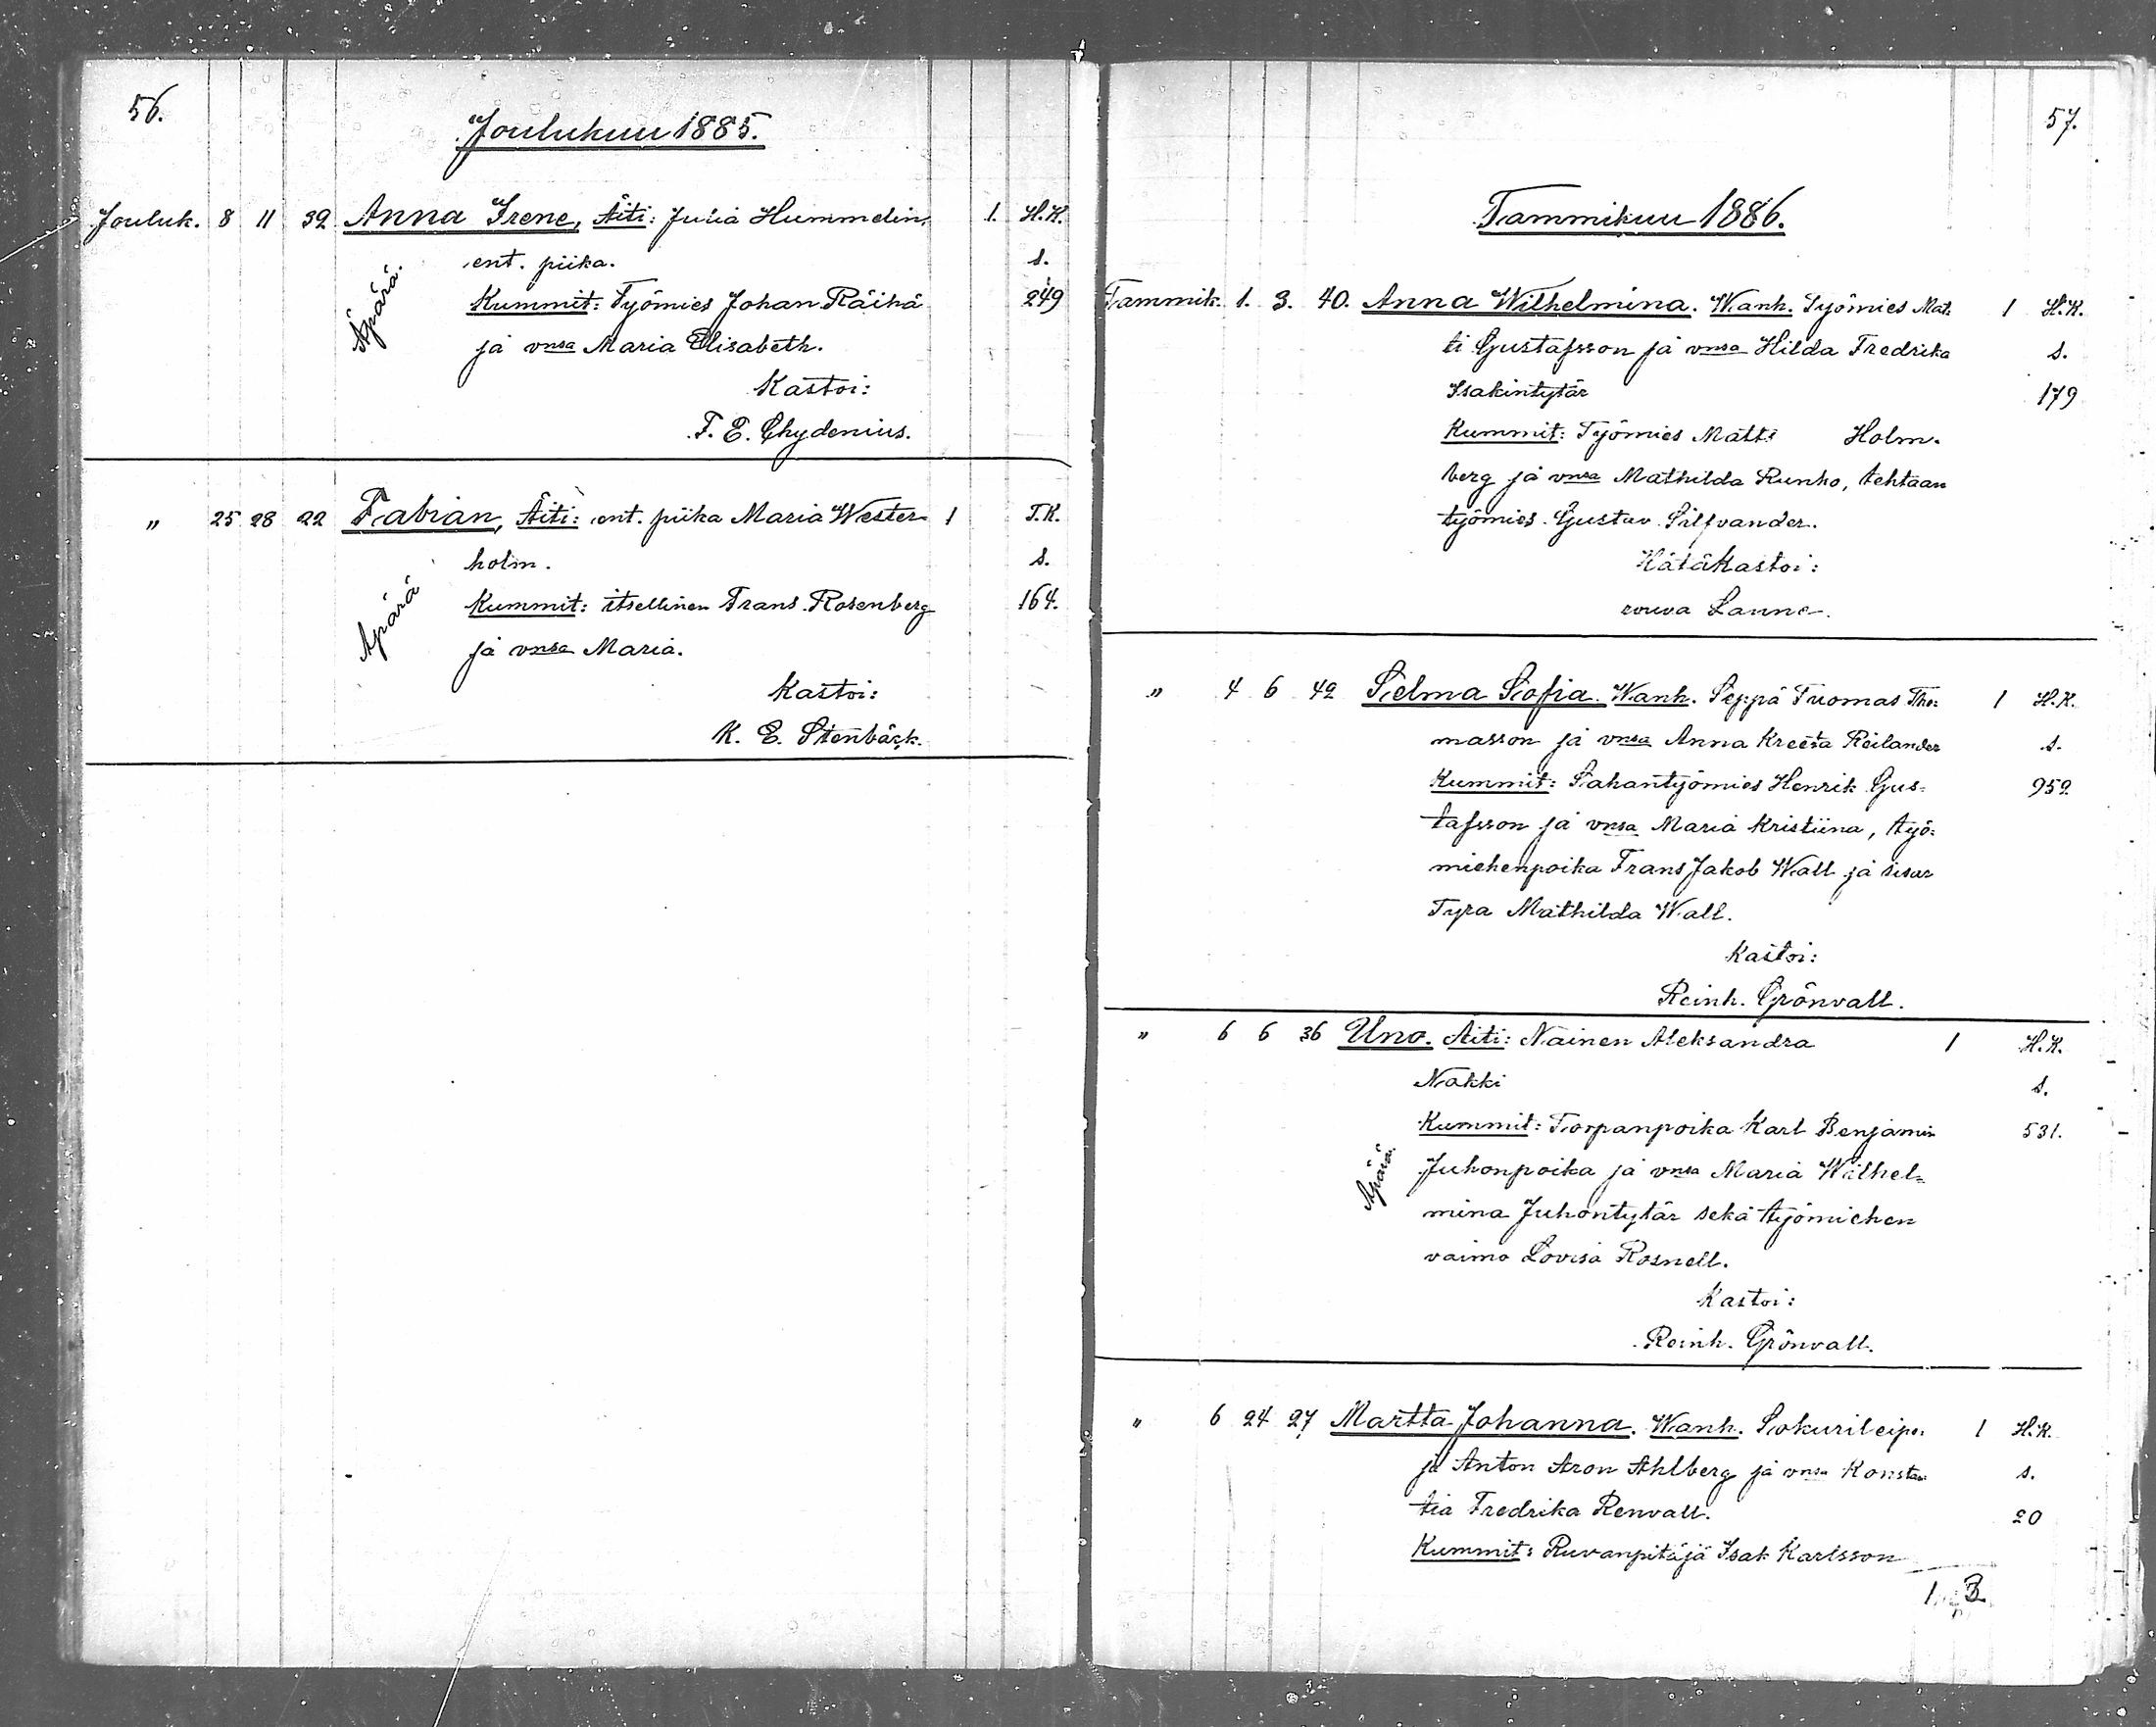 56.
Joulukuu 1885.
Jouluk. 8 11 32 Anna Irene, Äiti: Julia Hummelin, 1. H.K.
ent. piika. s.
Äpärä.
Kummit: Työmies Johan Räihä 249
ja vnsa Maria Elisabeth.
Kastoi:
F. E. Chydenius.
" 25 28 22 Fabian, Äiti: ent. piika Maria Wester- 1 T.K.
holm. s.
Äpärä
Kummit: itsellinen Frans Rosenberg 164.
ja vnsa Maria.
Kastoi:
K. E. Stenbäck.
57.
Tammikuu 1886.
Tammik. 1. 3. 40. Anna Wilhelmina. Wanh. Työmies Mat- 1 H.K.
ti Gustafsson ja vnsa Hilda Fredrika s.
Isakintytär 179
Kummit: Työmies Matti Holm-
berg ja vnsa Mathilda Runho, tehtaan
työmies Gustav Silfvander.
Hätäkastoi:
rouva Lanne.
" 4 6 42 Selma Sofia. Wanh. Seppä Tuomas Tho: 1 H.K.
masson ja vnsa Anna Kreeta Reilander s.
Kummit: Sahantyömies Henrik Gus: 952
tafsson ja vnsa Maria Kristiina, työ:
miehenpoika Frans Jakob Wall ja sisar
Tyra Mathilda Wall.
Kastoi:
Reinh. Grönvall.
" 6 6 36 Uno. Äiti: Nainen Aleksandra 1 H.K.
Nakki s.
Kummit: Torpanpoika Karl Benjamin 531.
Äpärä.
Juhonpoika ja vnsa Maria Wilhel=
mina Juhontytär sekä työmiehen
vaimo Lovisa Rosnell.
Kastoi:
Reinh. Grönvall.
" 6 24 27 Martta Johanna. Wanh. Sokurileipo: 1 H.K.
ja Anton Aron Ahlberg ja vnsa Konstan
tia Fredrika Renvall. 20
s.
Kummit: Ruvanpitäjä Isak Karlsson
1 3